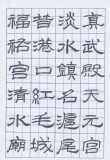 真武殿天元宮
淡水鎮名滬尾
昔港口紅毛城
福祐宮清水廟